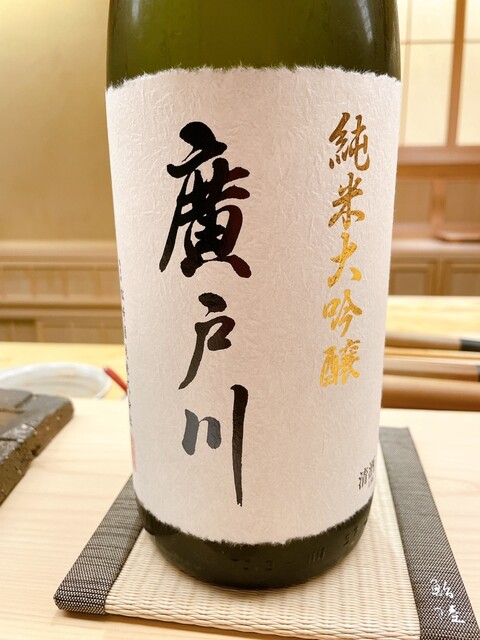 純米大吟醸
廣戸川
清酒